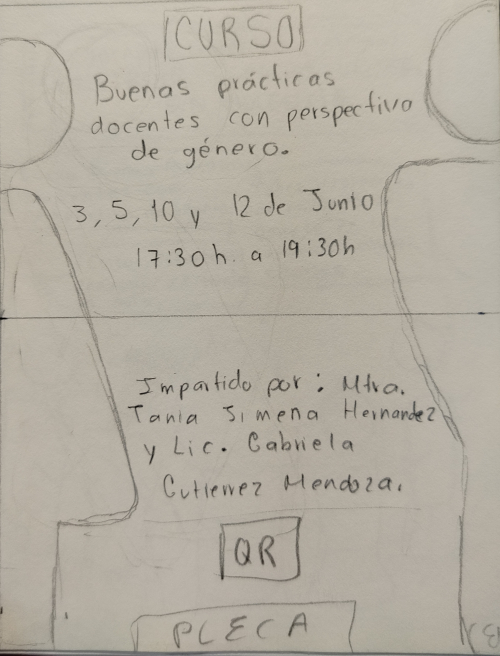 CURSO
Buenas prácticas
docentes con perspectiva
de género.
3, 5, 10 y 12 de Junio
17:30 h. a 19:30h
Impartido por: Mtra.
Tania Jimena Hernandez
y Lic. Gabriela
Gutierrez Mendoza.
QR
PLECA